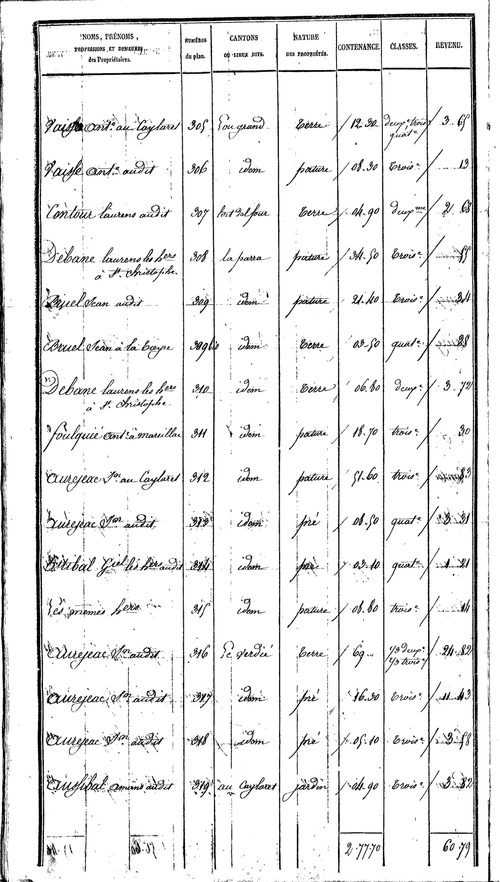 NOMS, PRÉNOMS, PROFESSIONS ET DEMEURES des Propriétaires. NUMÉROS du plan. CANTONS OU LIEUX DITS. NATURE DES PROPRIÉTÉS. CONTENANCE. CLASSES. REVENU.
Vaisse ant.e au Caylaret 305 Lou grand Terre 12.30 deux.e trois.e quat.e 3 65
Vaisse ant.e audit 306 idem pature 08.30 trois.e 13
Contour laurens audit 307 Terre 04.90 deux.me 2 68
Debane laurens les hers à St. Cristophe 308 la parra pature 34.50 trois.e 55
Bruel Jean audit 309 idem pature 21.40 trois.e 34
Bruel Jean à la 309 bis idem Terre 03.50 quat.e 28
Debane laurens les hers à St. Cristophe 310 idem Terre 06.80 deux.e 3 72
Foulquié ant.e à mareillac 311 idem pature 18.70 trois.e 30
aurejeac Jon au Caylaret 312 idem pature 51.60 trois.e 83
aurejeac Jon audit 313 idem pré 08.50 quat.e 3 31
les hers audit 314 idem pré 03.10 quat.e 1 21
Les mêmes hers 315 idem pature 08.80 trois.e 14
aurejeac Jon audit 316 Terre 69 1/3 deux.e 2/3 trois.e 24 82
aurejeac Jon audit 317 idem pré 16.30 trois.e 11 43
aurejeac Jon audit 318 idem pré 05.10 trois.e 3 58
amans audit 319 au Caylaret jardin 04.90 trois.e 3 82
2.77.70 60.79